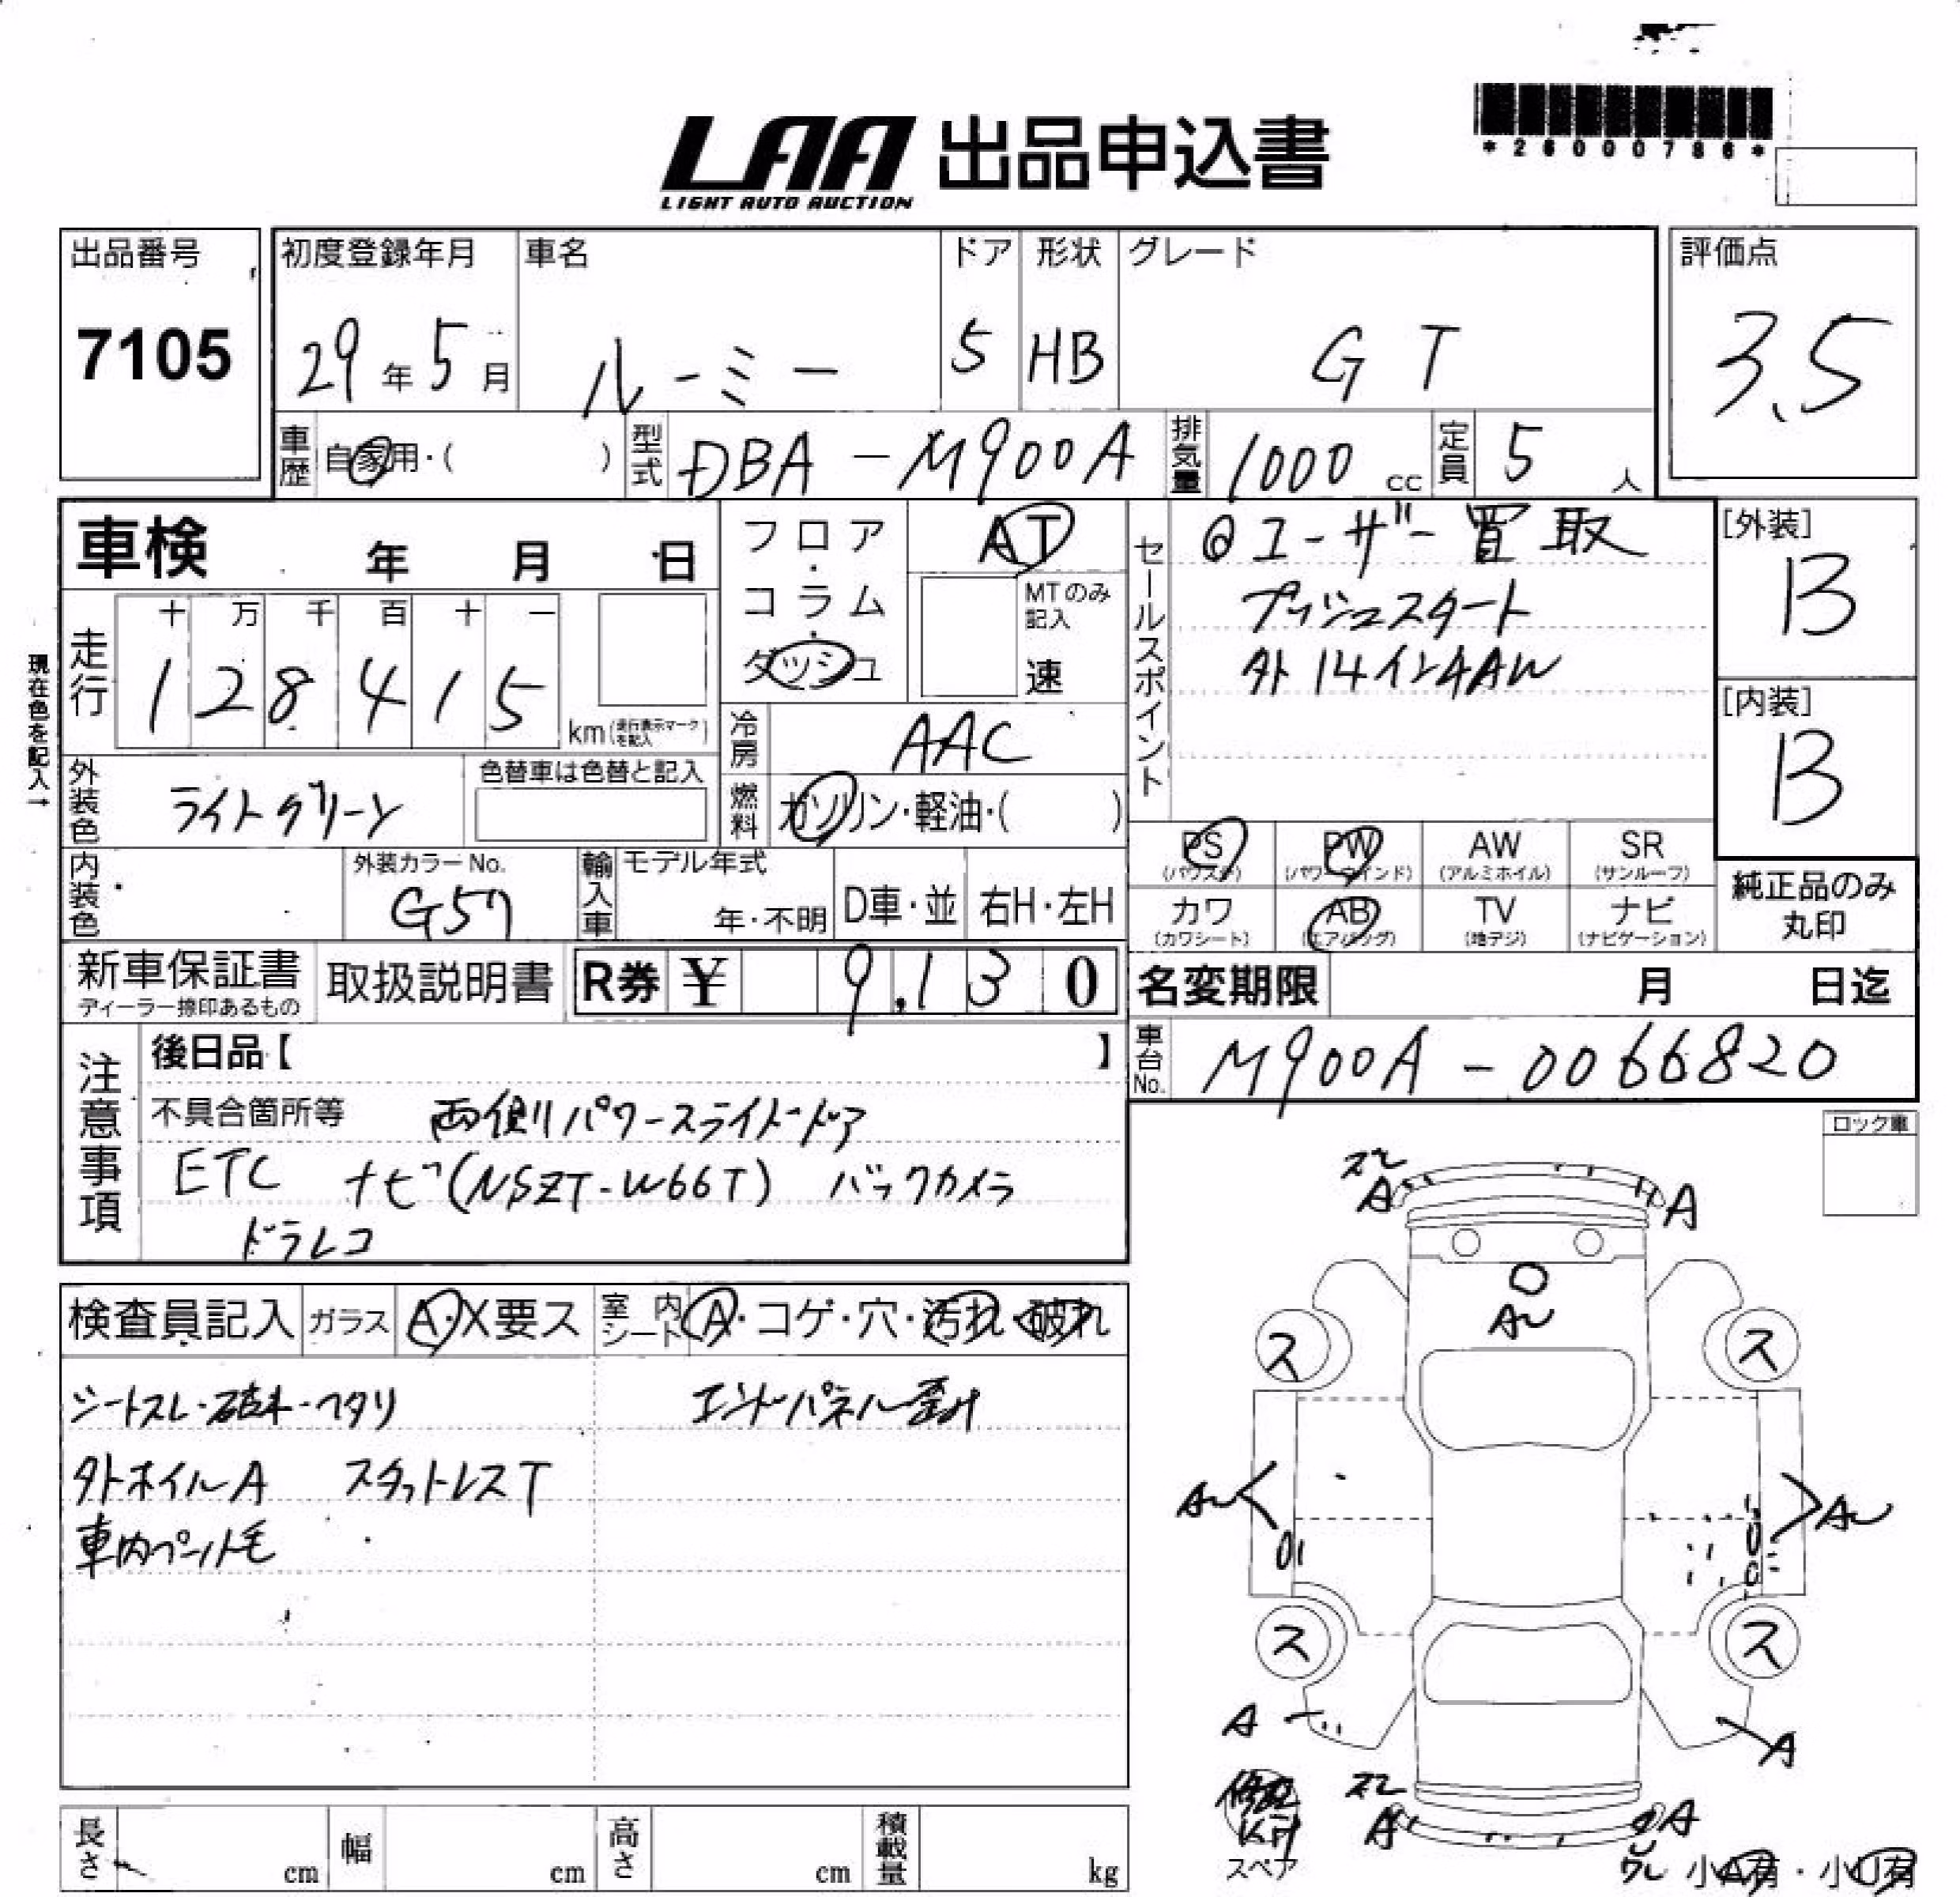 *26000786*
LAA 出品申込書
LIGHT AUTO AUCTION
出品番号 初度登録年月 車名 ドア 形状 グレード 評価点
7105 29年5月 ルーミー 5 HB GT 3.5
車歴 自家用・( ) 型式 DBA-M900A 排気量 1000cc 定員 5人
車検 年 月 日
フロア・コラム・ダッシュ
AT
MTのみ記入
速
セールスポイント
@ユーザー買取
プッシュスタート
外14インチAW
[外装]
B
[内装]
B
現在色を記入→
走行 十 万 千 百 十 一
1 2 8 4 1 5
km(走行表示マークを記入)
冷房 AAC
外装色 ライトグリーン 色替車は色替と記入
燃料 ガソリン・軽油・( )
PS(パワステ) PW(パワーウインド) AW(アルミホイル) SR(サンルーフ)
カワ(カワシート) AB(エアバッグ) TV(地デジ) ナビ(ナビゲーション)
純正品のみ丸印
内装色 外装カラーNo. G57 輸入車 モデル年式 年・不明 D車・並 右H・左H
新車保証書 ディーラー捺印あるもの 取扱説明書 R券 ¥ 9,130
名変期限 月 日迄
車台No. M900A-0066820
注意事項
後日品【 】
不具合箇所等 両側パワースライドドア
ETC ナビ(NSZT-W66T) バックカメラ
ドラレコ
ロック車
検査員記入 ガラス A・X要ス 室内シート A・コゲ・穴・汚れ・破れ
シートスレ・破れ・ヘタリ エンドパネル歪み
外ホイルA スタットレスT
車内ペット毛
ズレ
A A
AU
ス ス
AU AU
ス ス
A A
ズレ
A A
ワレ
スペア
小A有・小U有
長さ cm 幅 cm 高さ cm 積載量 kg